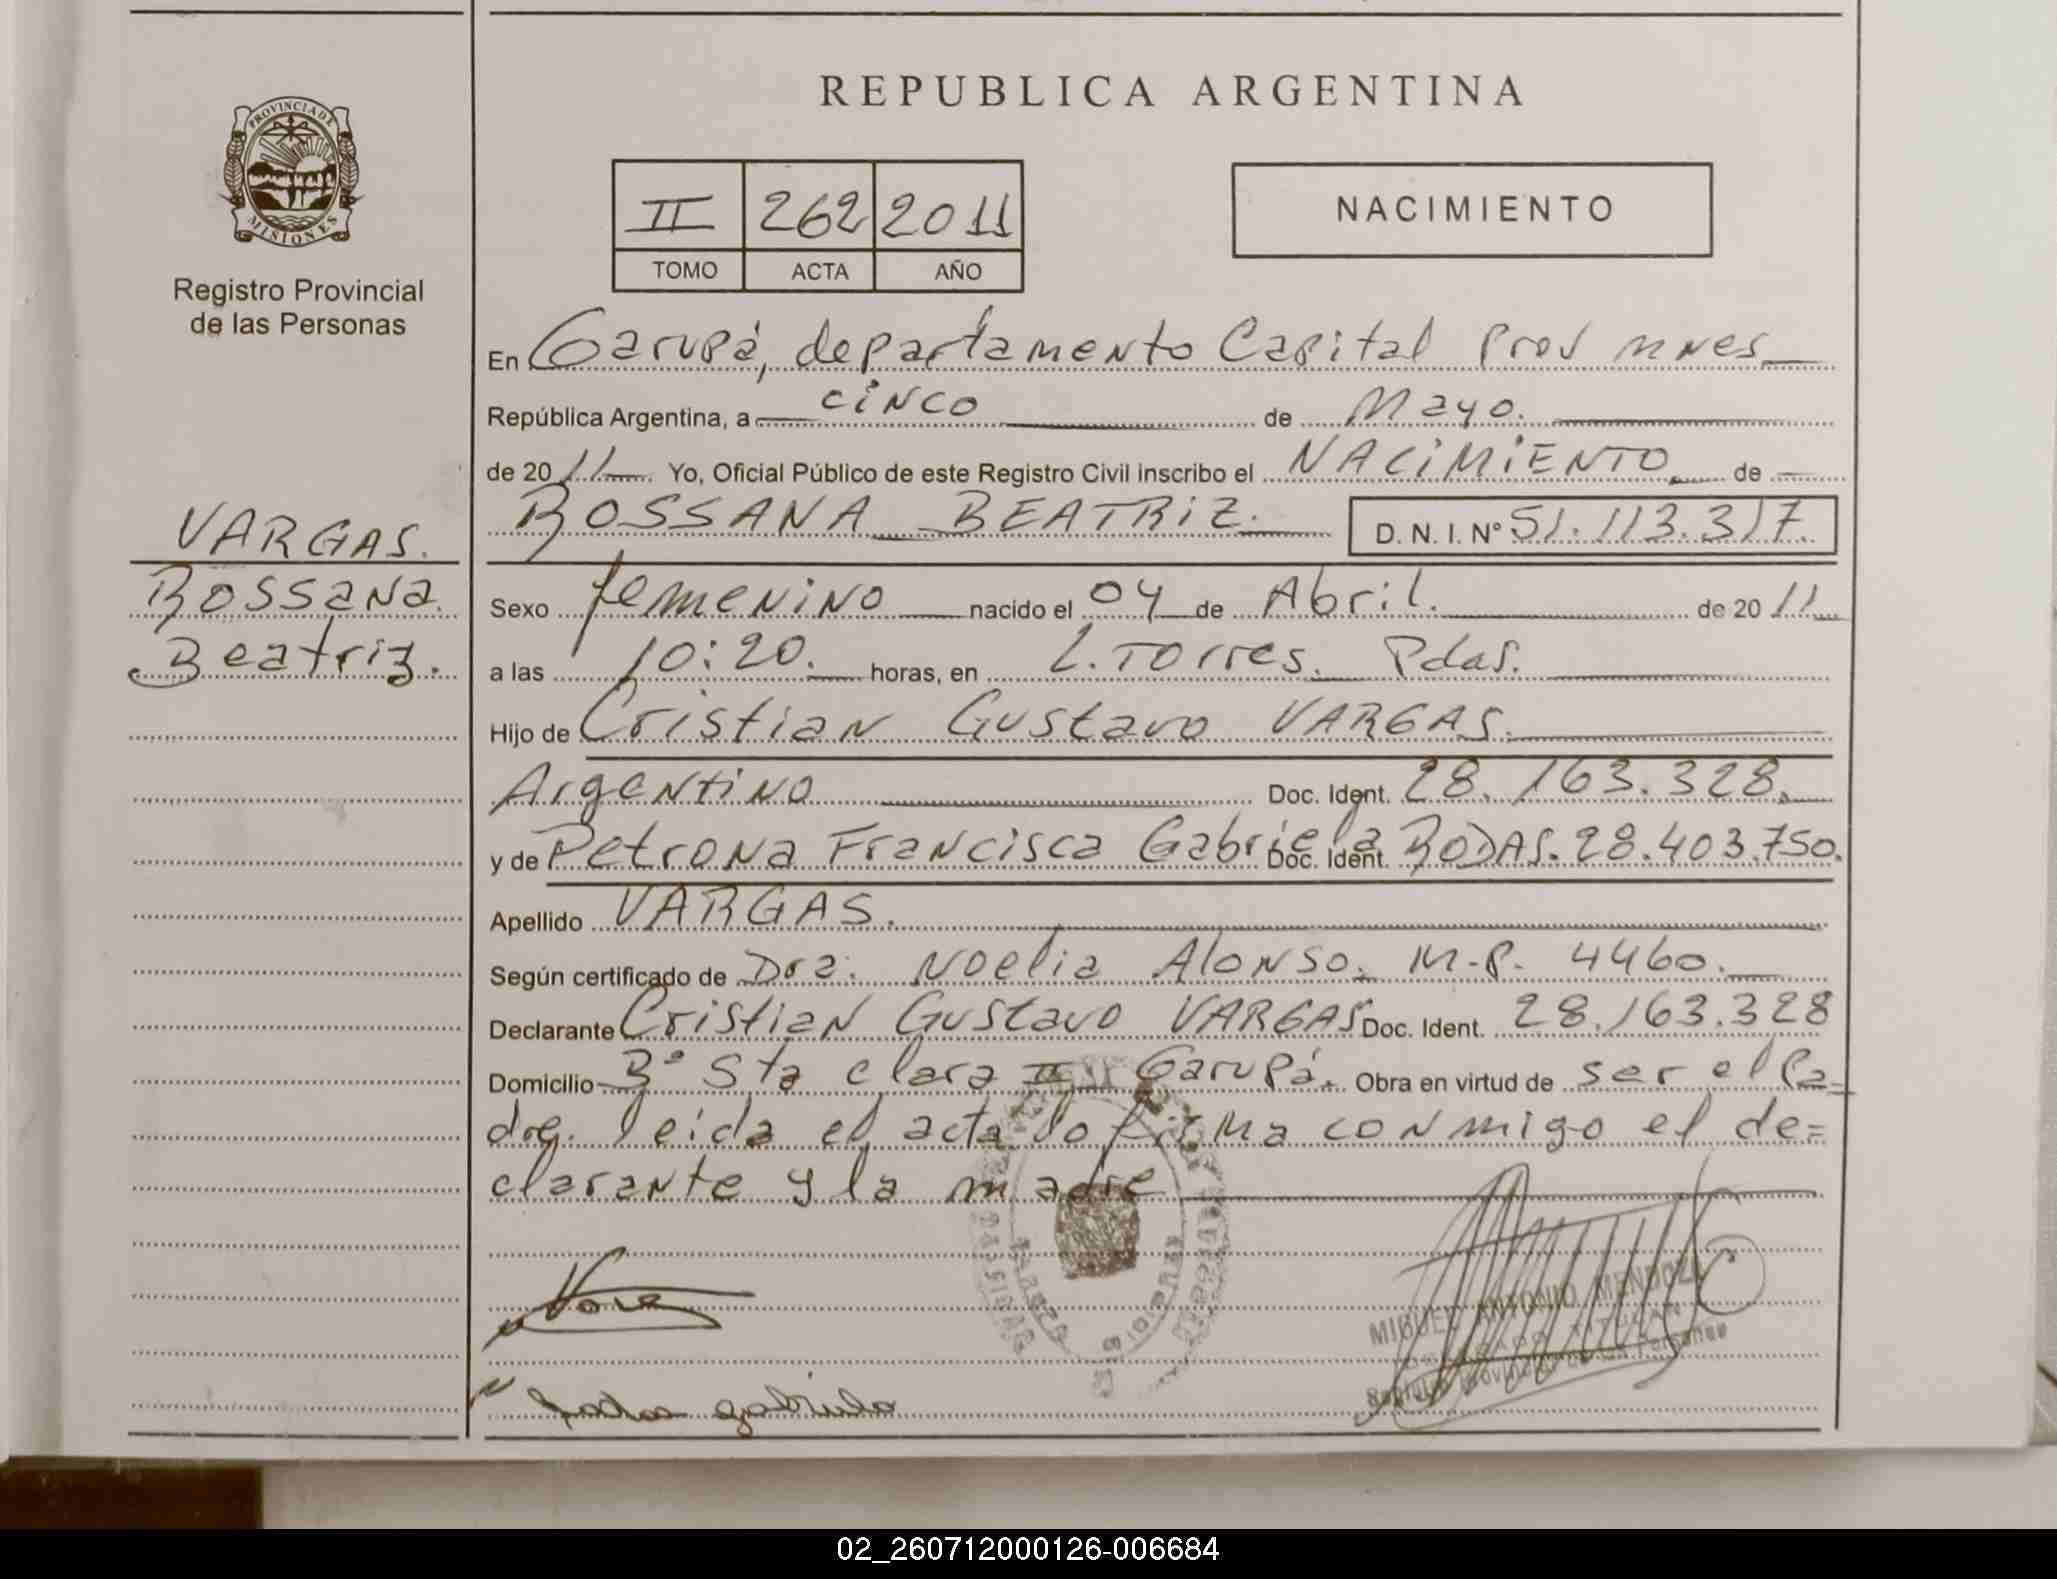 REPUBLICA ARGENTINA
PROVINCIA DE
MISIONES
Registro Provincial
de las Personas
II 262 2011
TOMO ACTA AÑO
NACIMIENTO
En Garupá, departamento Capital Prov mnes
República Argentina, a cinco de Mayo.
de 2011 Yo, Oficial Público de este Registro Civil inscribo el NACIMIENTO de
ROSSANA BEATRIZ. D. N. I. Nº 51.113.317.
VARGAS.
Rossana
Beatriz.
Sexo femenino nacido el 04 de Abril. de 2011
a las 10:20. horas, en L. Torres. Pdas.
Hijo de Cristian Gustavo VARGAS.
Argentino Doc. Ident. 28.163.328.
y de Petrona Francisca Gabriela Doc. Ident. RODAS. 28.403.750.
Apellido VARGAS.
Según certificado de Dra. Noelia Alonso. M.P. 4460.
Declarante Cristian Gustavo VARGAS Doc. Ident. 28.163.328
Domicilio Bº Sta clara II Garupá. Obra en virtud de ser el Pa-
dre. leída el acta lo firma conmigo el de=
clarante y la madre
MIGUEL ANTONIO MENDOZA
DELEGADO TITULAR
Registro Provincial de las Personas
Rodas gabriela
02_260712000126-006684